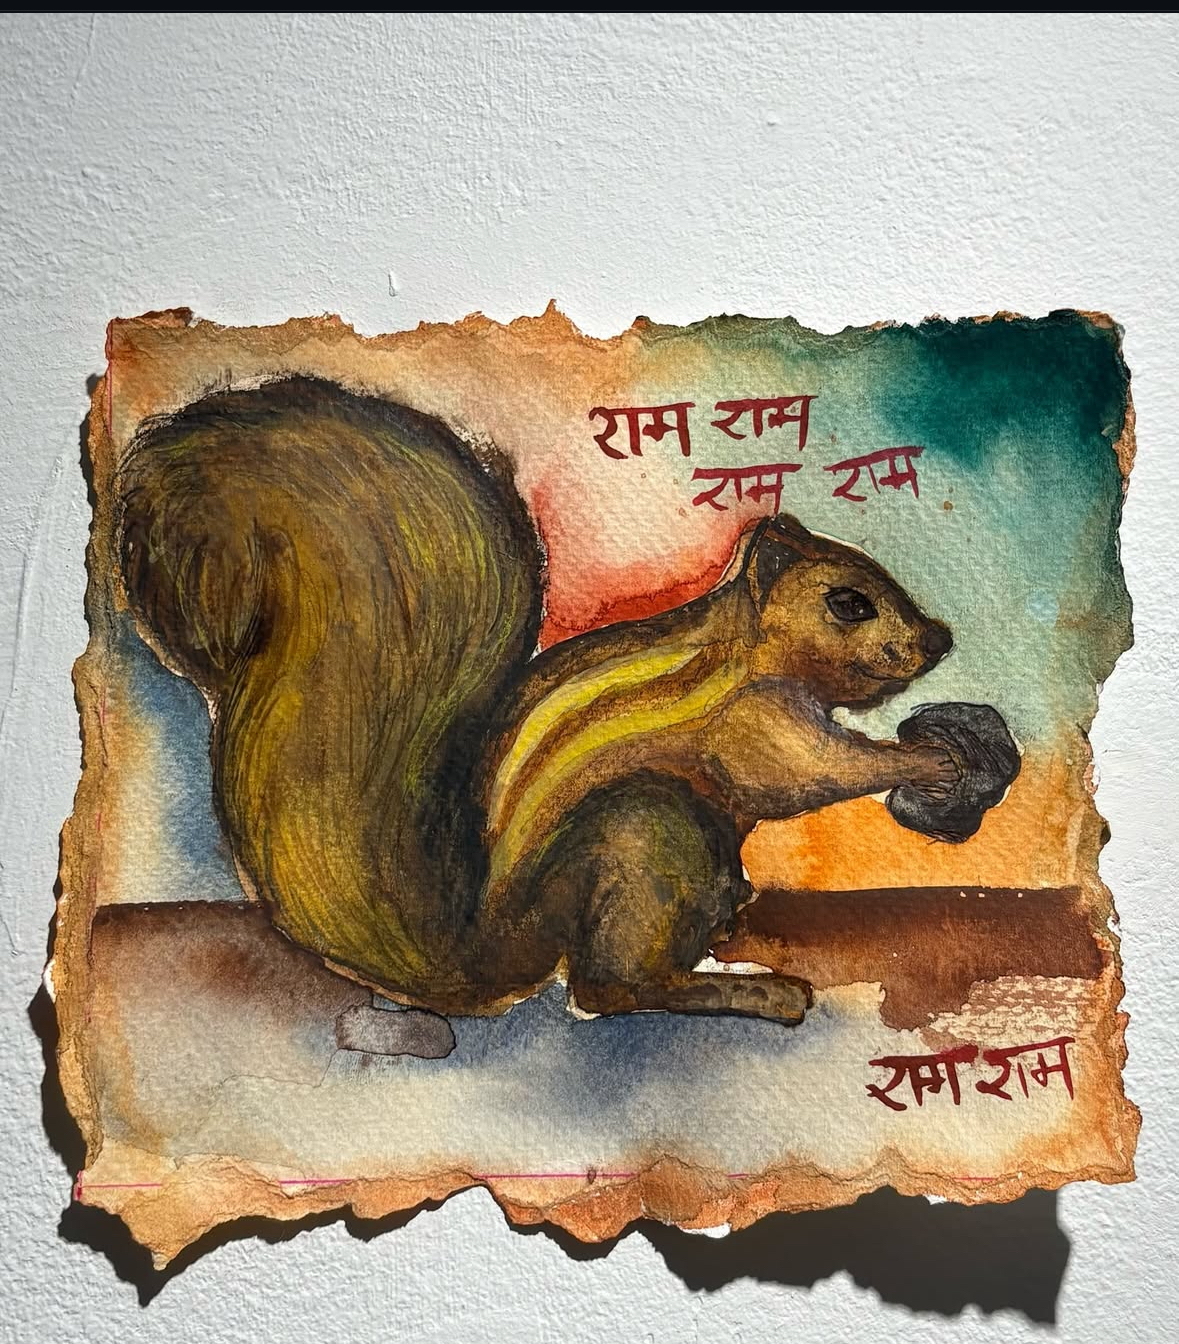 राम राम
राम राम
राम राम